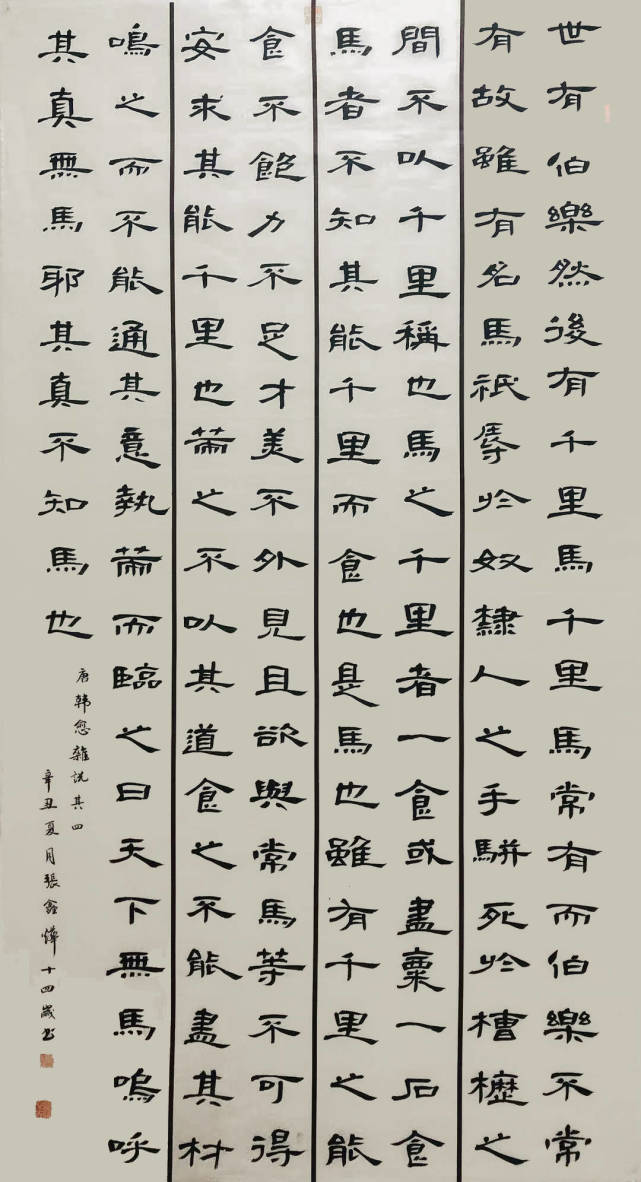 世有伯樂然後有千里馬千里馬常有而伯樂不常
有故雖有名馬祇辱於奴隸人之手駢死於槽櫪之
間不以千里稱也馬之千里者一食或盡粟一石食
馬者不知其能千里而食也是馬也雖有千里之能
食不飽力不足才美不外見且欲與常馬等不可得
安求其能千里也策之不以其道食之不能盡其材
鳴之而不能通其意執策而臨之曰天下無馬嗚呼
其真無馬耶其真不知馬也
唐韓愈雜說其四
辛丑夏月張鑫燁十四歲書